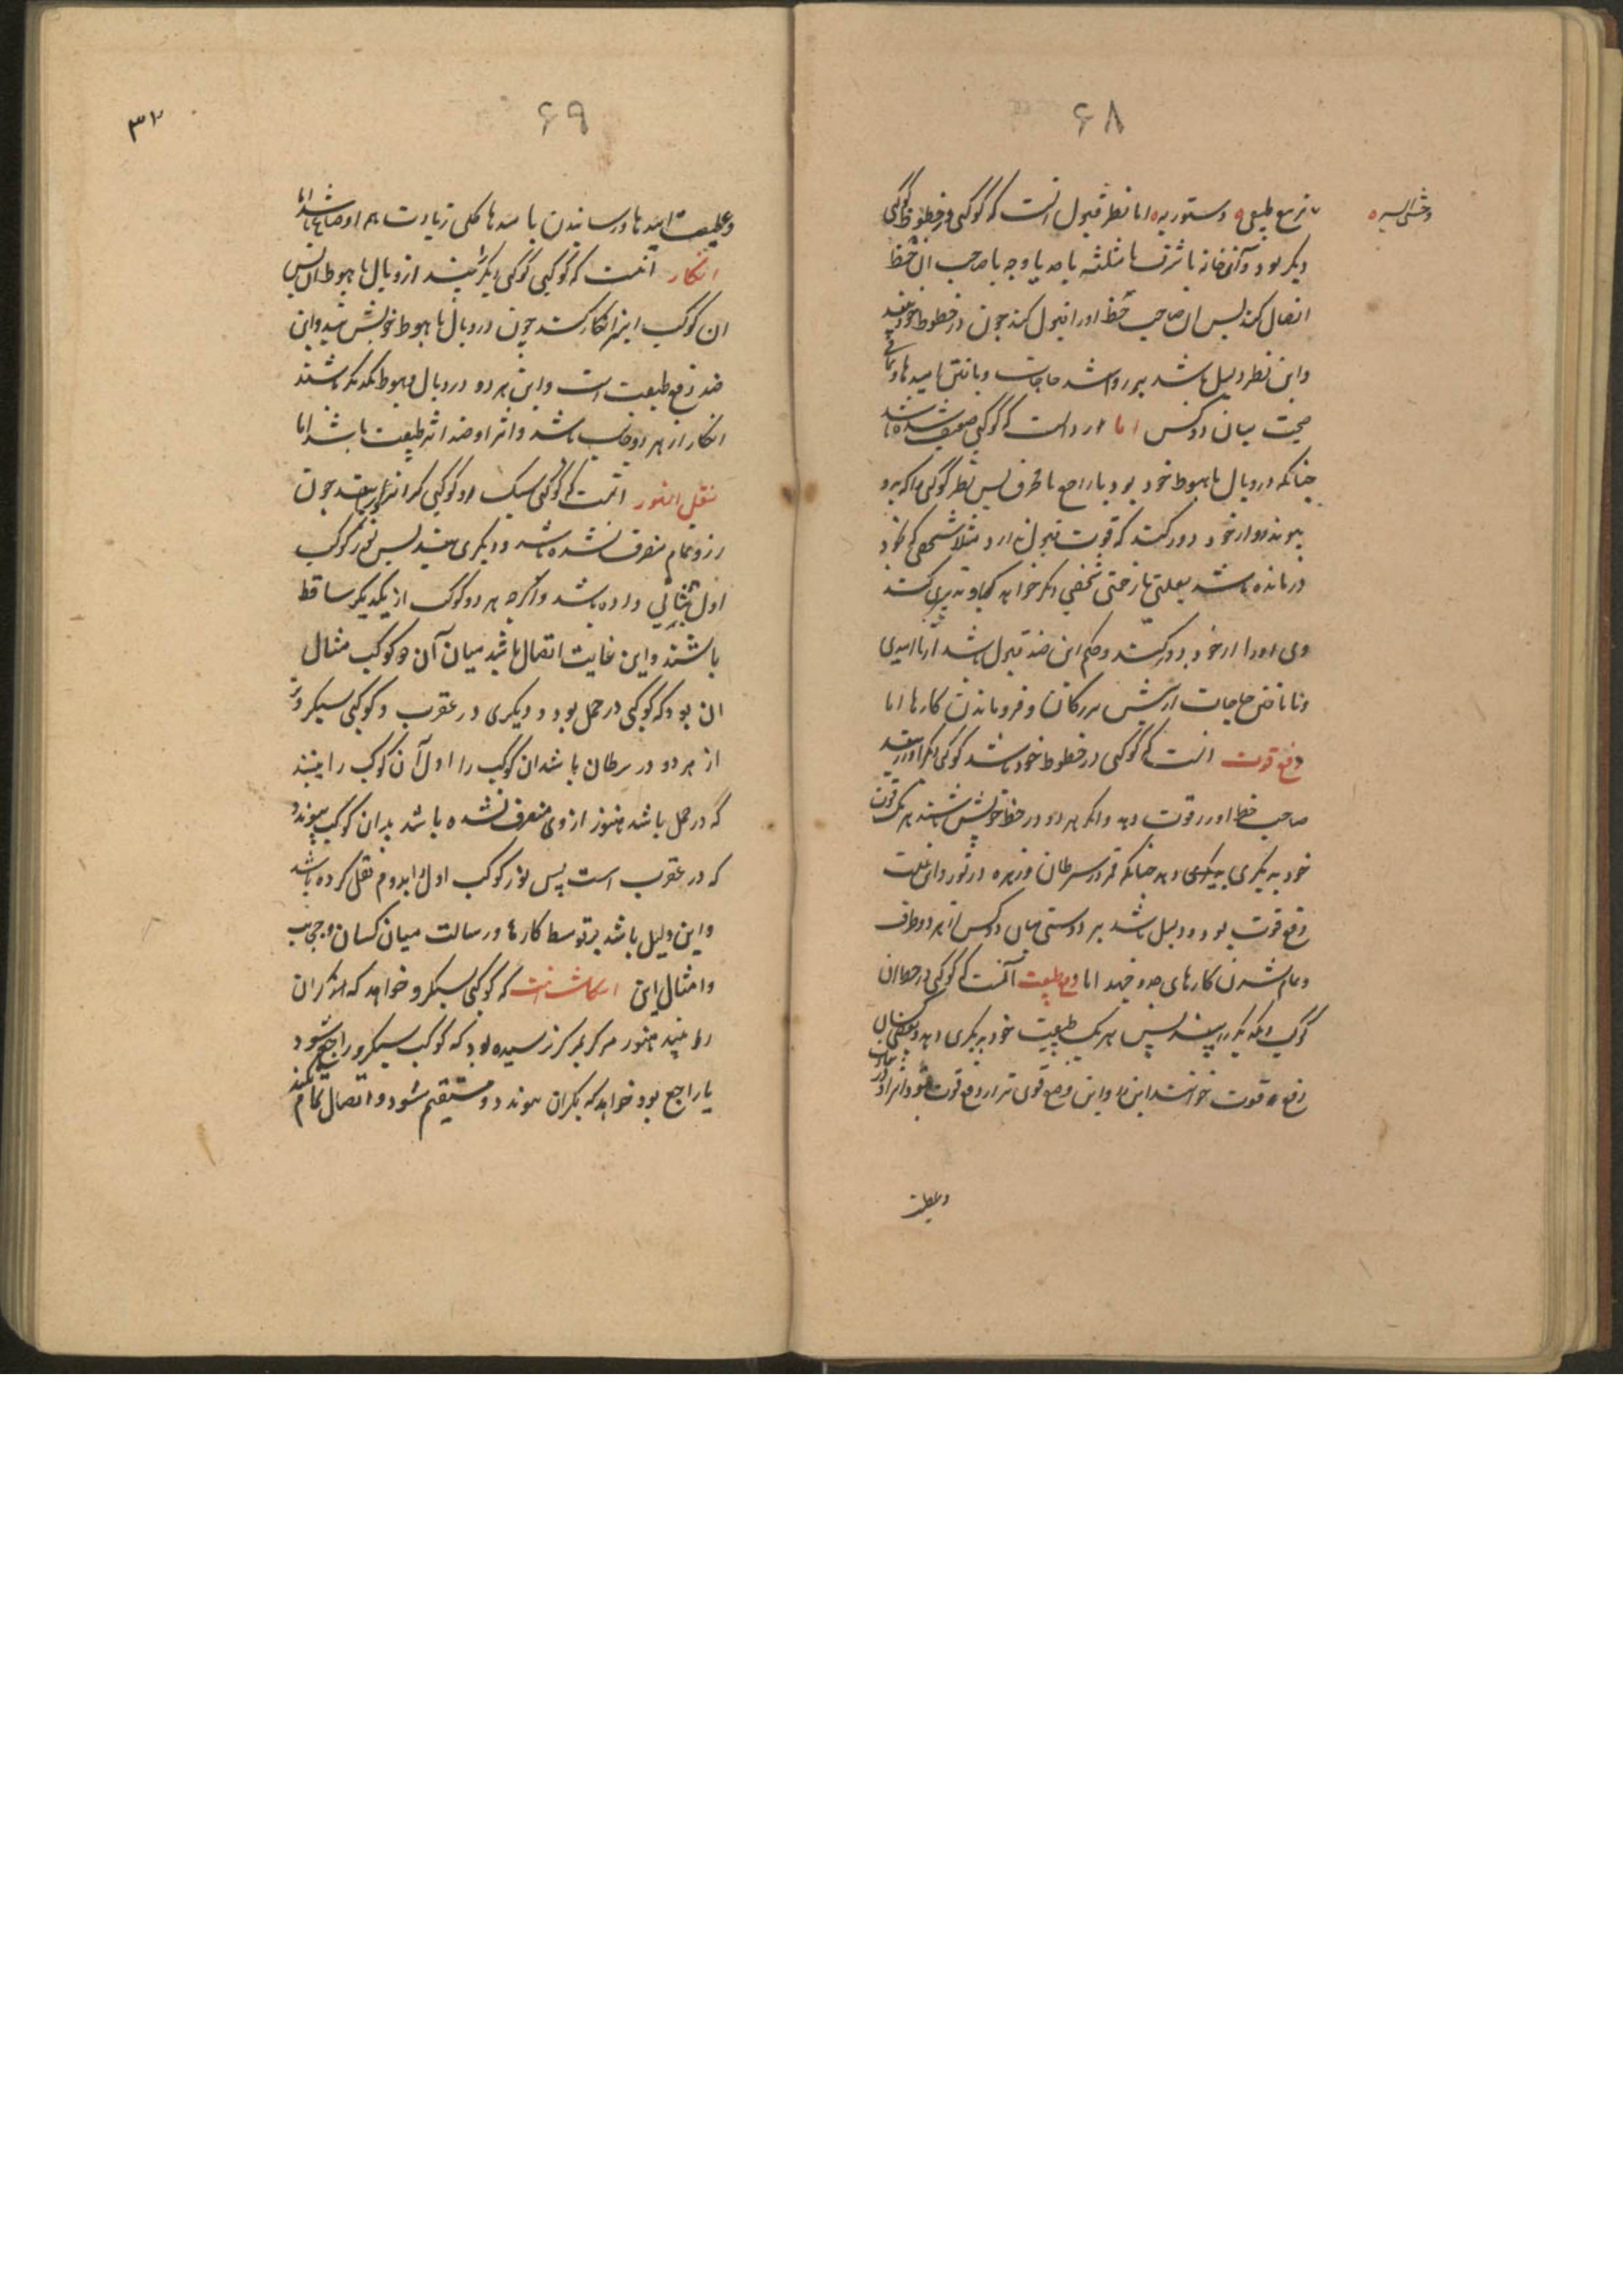 ۶۸
وحشی السیر ه
تربیع طبیعی ه دستوریه ه اما نظر قبول آنست که کوکبی در خطوط کوکبی
دیگر بود و آن خانه یا شرف یا مثلثه یا حد یا وجه با صاحب آن حظ
اتصال کند پس آن صاحب حظ او را قبول کند چون در خطوط خود بیند
و این نظر دلیل باشد بر روا شدن حاجات و یافتن امیدها و
صحبت میان دو کس اما رد آنست که کوکبی ضعیف شده باشد
چنانکه در وبال یا هبوط خود بود یا راجع یا محترق پس نظر کوکبی را که بدو
پیوندد از خود دور کند که قوت قبول ندارد مثلا شخصی که خود
درمانده باشد بعلتی یا زحمتی شخصی دیگر خواهد که باو تدبیری کند
وی او را از خود دور کند و حکم این ضد قبول باشد از ناامیدی
و نایافتن حاجات از پیش بزرگان و فروماندن کارها اما
دفع قوت آنست که کوکبی در خطوط خود باشد کوکبی دیگر را بیند
صاحب حظ او را قوت دهد و اگر هر دو در حظ خویش باشند هر یک قوت
خود بدیگری دهد چنانکه قمر در سرطان و زهره در ثور و این غایت
دفع قوت بود و دلیل باشد بر دوستی میان دو کس از هر دو طرف
و تمام شدن کارهای جد و جهد اما دفع طبیعت آنست که کوکبی در حظ آن
کوکب و یکدیگر را بیند پس هر یک طبیعت خود بدیگری دهد و بعضی
دفع قوت خوانند این را و این وضع قوی تر از دفع قوت بود و اثر او در
و عطیت
۳۲
۶۹
و عطیت امیدها و رسانیدن با کلی زیادت هم اوضاع باشد اما
انکار آنست که کوکبی کوکبی دیگر را بیند از وبال یا هبوط آن پس
آن کوکب اینرا انکار کند چون در وبال یا هبوط خویش بیند و این
ضد دفع طبیعت است و این هر دو در وبال و هبوط یکدیگر باشند
انکار از هر دو جانب باشد و اثر او ضد اثر طبیعت باشد اما
نقل النور آنست که کوکبی سبک رو کوکبی گران رو را بیند چون
از و تمام منصرف نشده باشد و دیگری بیند پس نور کوکب
اول بثانی داده باشد و اگرچه هر دو کوکب از یکدیگر ساقط
باشند و این غایت اتصال باشد میان آن دو کوکب مثال
آن بود که کوکبی در حمل بود و دیگری در عقرب و کوکبی سبکروتر
از هر دو در سرطان باشد آن کوکب را اول آن کوکب را بیند
که در حمل باشد هنوز از وی منصرف نشده باشد بدان کوکب پیوندد
که در عقرب است پس نور کوکب اول را بدوم نقل کرده باشد
و این دلیل باشد بر توسط کارها و رسالت میان کسان و
و امثال این انتکاث آنست که کوکبی سبکرو خواهد که گران
را بیند هنوز مرکز بمرکز نرسیده بود که کوکب سبکرو راجع شود
یا راجع بود خواهد که بگران پیوندد و مستقیم شود و اتصال تمام نکند